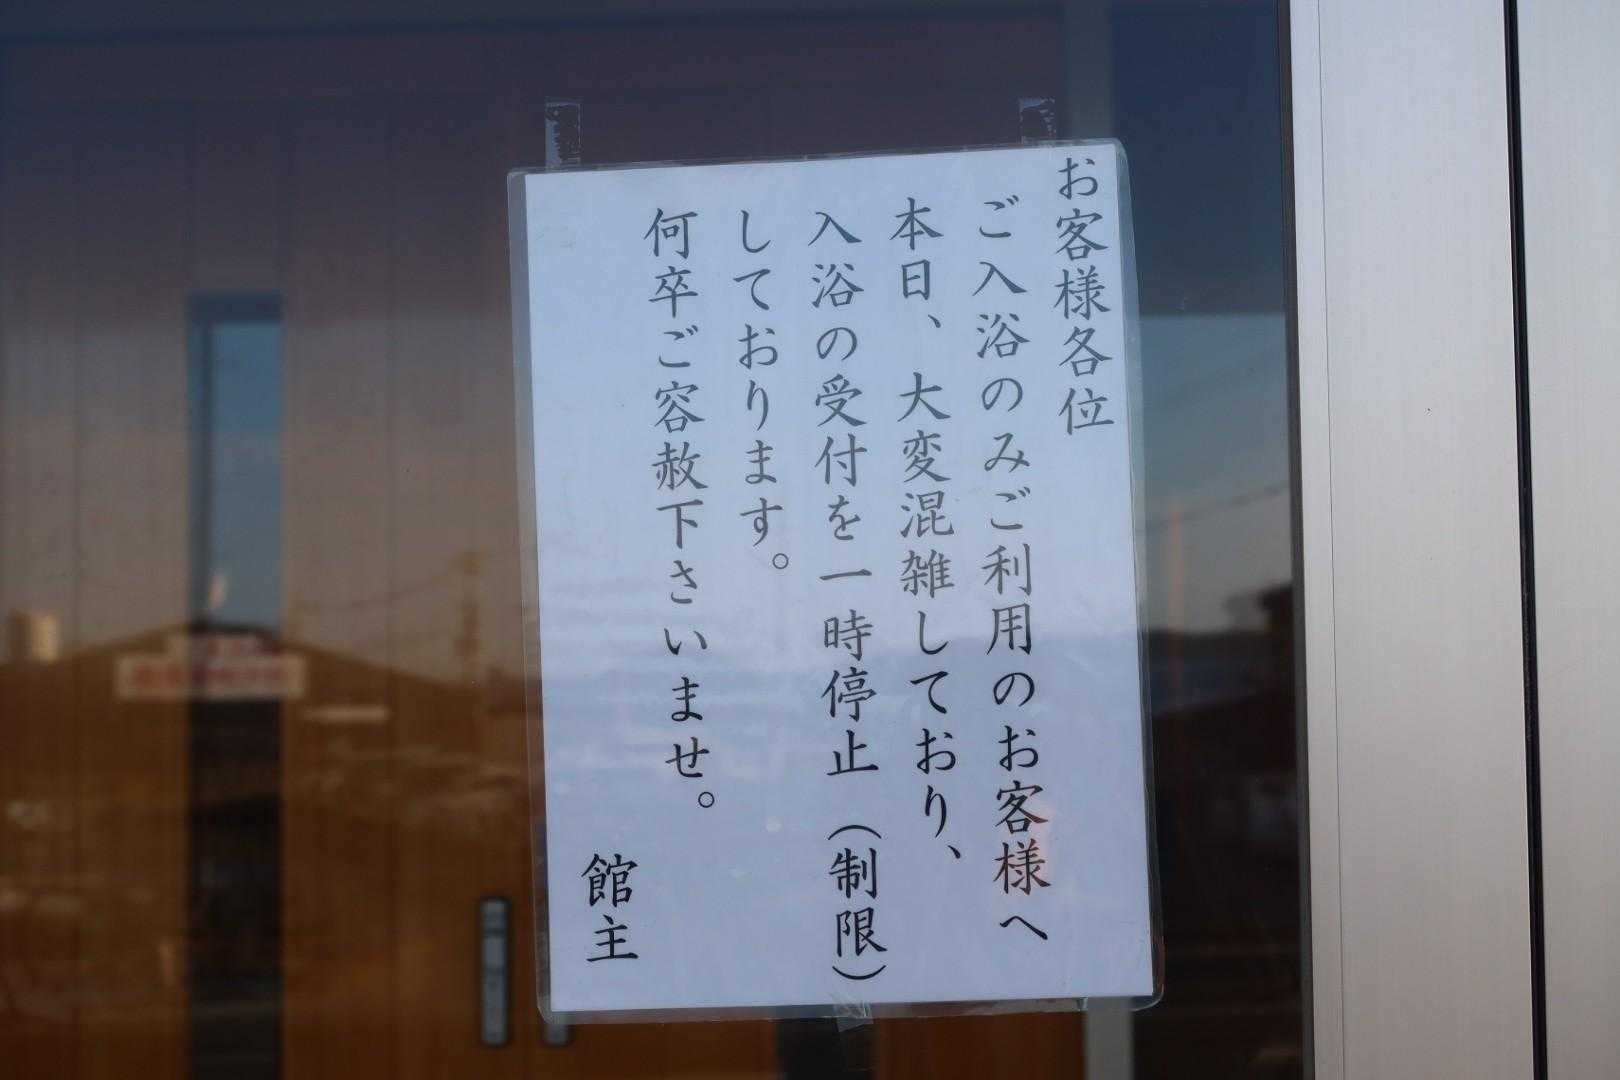 お客様各位
ご入浴のみご利用のお客様へ
本日、大変混雑しており、
入浴の受付を一時停止（制限）
しております。
何卒ご容赦下さいませ。
館主